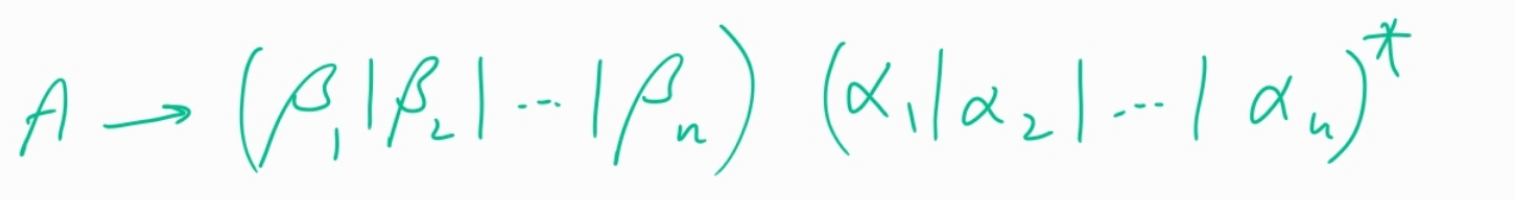 A → (β₁|β₂|...|βₙ) (α₁|α₂|...|αₙ)*